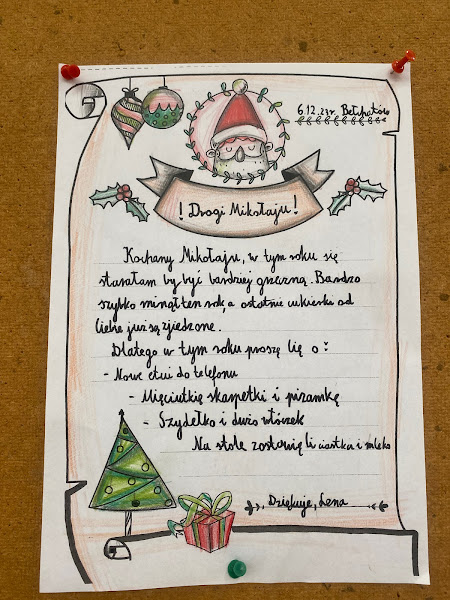 6.12.23r. Bełchatów
! Drogi Mikołaju !
Kochany Mikołaju, w tym roku się
starałam by być bardziej grzeczną. Bardzo
szybko minął ten rok, a ostatnie cukierki od
Ciebie już są zjedzone.
Dlatego w tym roku proszę Cię o:
- Nowe etui do telefonu
- Mięciutkie skarpetki i piżamkę
- Szydełko i dużo włóczek
Na stole zostawię Ci ciastka i mleko
Dziękuję, Lena